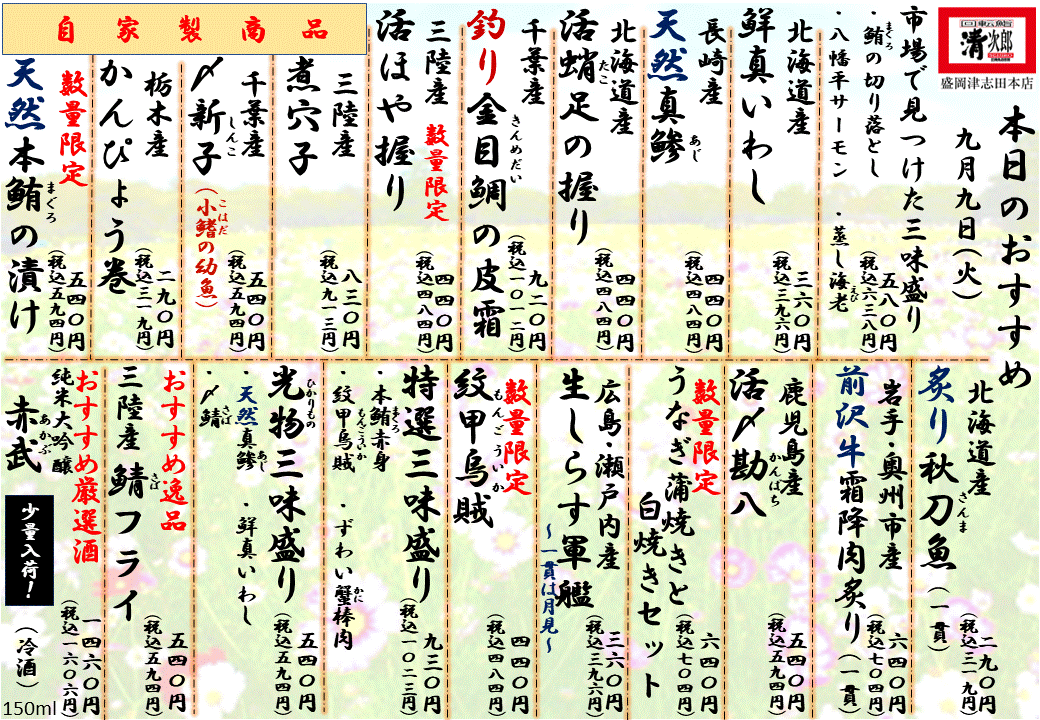 回転鮨
清次郎
盛岡津志田本店
本日のおすすめ
九月九日(火)
市場で見つけた三味盛り
・鮪の切り落とし
まぐろ
・八幡平サーモン ・蒸し海老
えび
五八〇円
(税込六三八円)
北海道産
鮮真いわし
三六〇円
(税込三九六円)
長崎産
天然真鯵
あじ
四四〇円
(税込四八四円)
北海道産
活蛸足の握り
たこ
四四〇円
(税込四八四円)
千葉産
釣り金目鯛の皮霜
きんめだい
九二〇円
(税込一〇一二円)
三陸産
数量限定
活ほや握り
四四〇円
(税込四八四円)
自家製商品
三陸産
煮穴子
八三〇円
(税込九一三円)
千葉産
〆新子
しんこ
(小鰭の幼魚)
こはだ
五四〇円
(税込五九四円)
栃木産
かんぴょう巻
二九〇円
(税込三一九円)
数量限定
天然本鮪の漬け
まぐろ
五四〇円
(税込五九四円)
北海道産
炙り秋刀魚(一貫)
さんま
二九〇円
(税込三一九円)
岩手・奥州市産
前沢牛霜降肉炙り(一貫)
六四〇円
(税込七〇四円)
鹿児島産
活〆勘八
かんぱち
五四〇円
(税込五九四円)
数量限定
うなぎ蒲焼きと
白焼きセット
六四〇円
(税込七〇四円)
広島・瀬戸内産
生しらす軍艦
~一貫は月見~
三六〇円
(税込三九六円)
数量限定
紋甲烏賊
もんごういか
四四〇円
(税込四八四円)
特選三味盛り
・本鮪赤身
まぐろ
・紋甲烏賊 ・ずわい蟹棒肉
もんごういか
かに
九三〇円
(税込一〇二三円)
光物三味盛り
ひかりもの
・天然真鯵 ・鮮真いわし
あじ
・〆鯖
さば
五四〇円
(税込五九四円)
おすすめ逸品
三陸産 鯖フライ
さば
五四〇円
(税込五九四円)
おすすめ厳選酒
純米大吟醸
赤武
あかぶ
少量入荷!
(冷酒)
一四六〇円
(税込一六〇六円)
150ml